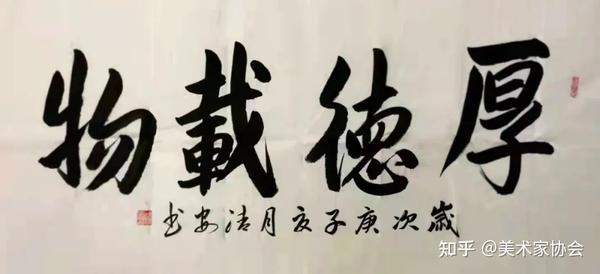 厚德載物
歲次庚子夏月清安书
知乎 @美术家协会